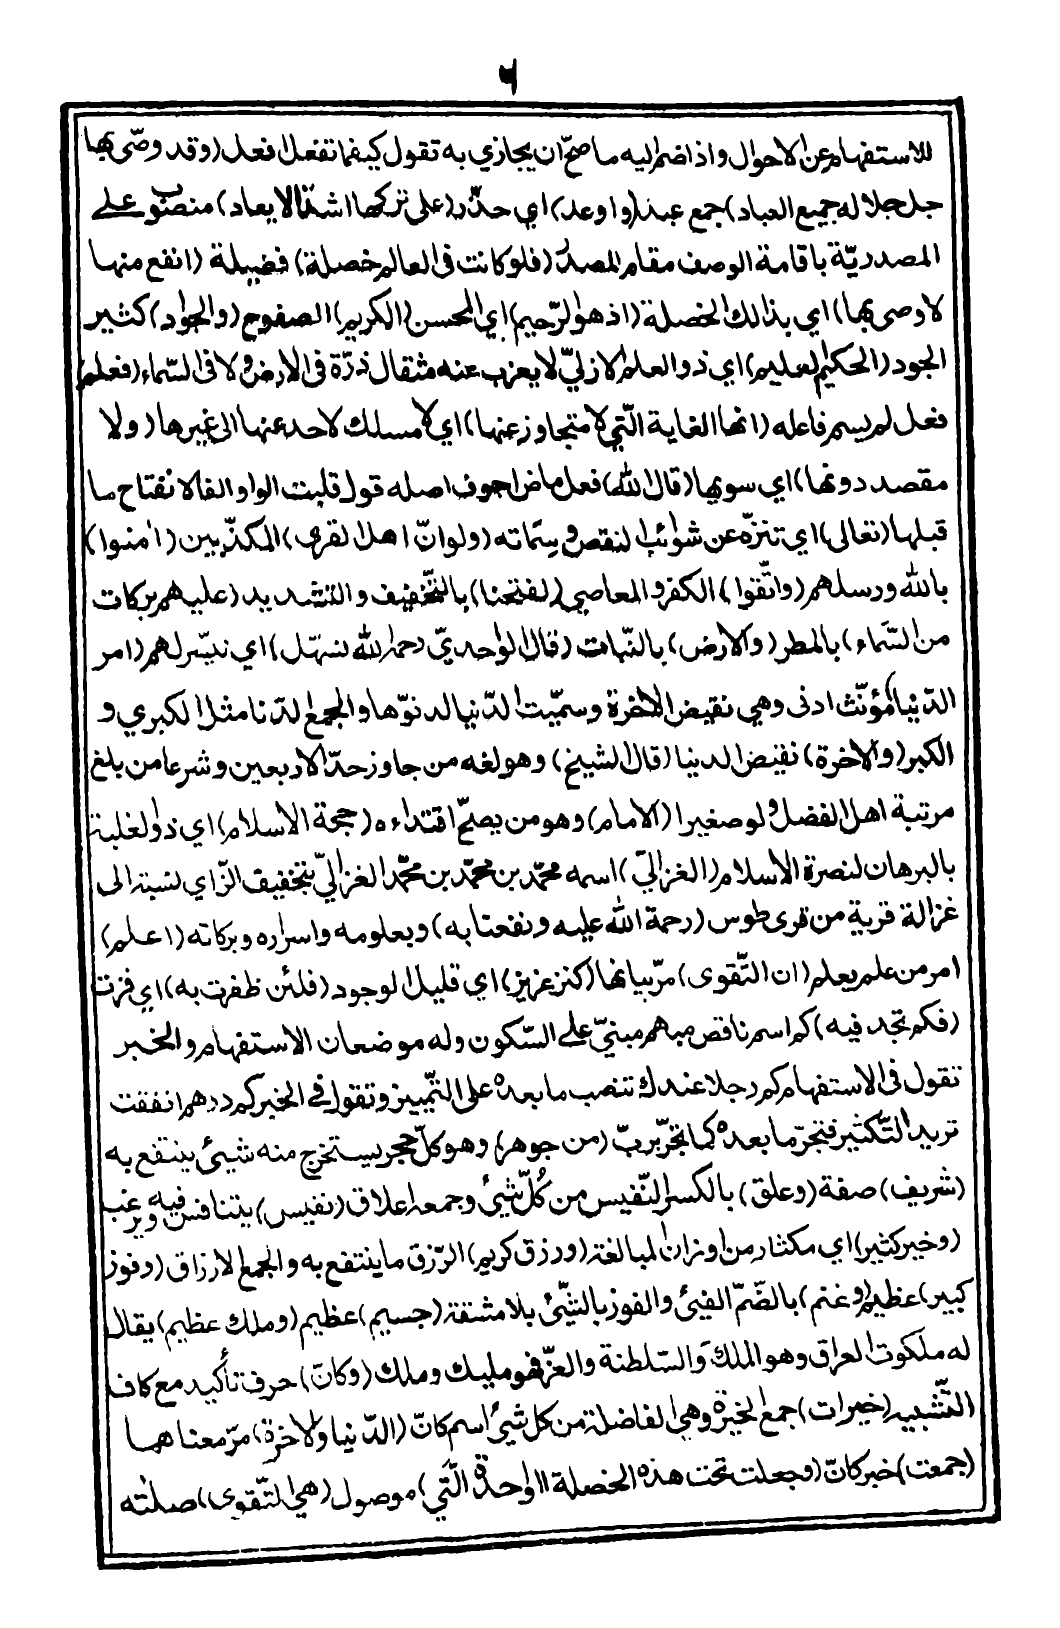 ٦
للاستفهام عن الاحوال واذا ضم اليه ما صحّ ان يجازي به تقول كيفما تفعل افعل (وقد وصّى بها
جل جلاله جميع العباد) جمع عبد (واوعد) اي حذّر (على تركها اشدّ الايعاد) منصوب على
المصدريّة باقامة الوصف مقام المصدر (فلو كانت فى العالم خصلة) فضيلة (انفع منها
لاوصى بها) اي بذالك الخصلة (اذ هو الرّحيم) اي المحسن (الكريم) الصفوح (والجواد) كثير
الجود (الحكيم العليم) اي ذو العلم الازليّ لا يعزب عنه مثقال ذرّة فى الارض ولا فى السّماء (فعلم)
فعل لم يسم فاعله (انها الغاية الّتي لا متجاوز عنها) اي لا مسلك لاحد عنها الى غيرها (ولا
مقصد دونها) اي سويها (قال الله) فعل ماض اجوف اصله قول قلبت الواو الفا لانفتاح ما
قبلها (تعالى) اي تنزّه عن شوائب النقص وسماته (ولو انّ اهل القرى) المكذّبين (اٰمنوا)
بالله ورسلهم (واتّقوا) الكفر والمعاصي (لفتحنا) بالتّخفيف والتشديد (عليهم بركات
من السّماء) بالمطر (والارض) بالنّبات (قال الواحديّ رحمه الله لنسهّل) اي نيسّر لهم (امر
الدّنيا) مؤنّث ادنى وهي نقيض الاخرة وسمّيت الدّنيا لدنوّها والجمع الدّنا مثل الكبري و
الكبر (والاخرة) نقيض الدنيا (قال الشيخ) وهو لغه من جاوز حدّ الاربعين وشرعا من بلغ
مرتبة اهل الفضل ولو صغيرا (الامام) وهو من يصلح اقتداءه (حجة الاسلام) اي ذو الغلبة
بالبرهان لنصرة الاسلام (الغزاليّ) اسمه محمّد بن محمّد بن محمّد الغزاليّ بتخفيف الزّاي نسبته الى
غزالة قرية من قرى طوس (رحمة الله عليه ونفعنا به) وبعلومه واسراره وبركاته (اعلم)
امر من علم يعلم (ان التّقوى) مرّ بيانها (كنز عزيز) اي قليل الوجود (فلئن ظفرت به) اي فزت
(فكم تجد فيه) كم اسم ناقص مبهم مبنيّ على السّكون وله موضعان الاستفهام والخبر
تقول فى الاستفهام كم رجلا عندك تنصب ما بعده على التّمييز وتقول في الخبر كم درهم انفقت
تريد التّكثير فتجرّ ما بعده كما تجرّ بربّ (من جوهر) وهو كلّ حجر يستخرج منه شيئ ينتفع به
(شريف) صفة (وعلق) بالكسر النّفيس من كُلّ شيئ وجمعه اعلاق (نفيس) يتنافس فيه ويرغب
(وخير كثير) اي مكثار من اوزان المبالغة (ورزق كريم) الرّزق ما ينتفع به والجمع الارزاق (وفوز
كبير) عظيم (وغنم) بالضّمّ الفيئ والفوز بالشّئ بلا مشقة (جسيم) عظيم (وملك عظيم) يقال
له ملكوت العراق وهو الملك والسّلطنة والعزّ فهو مليك وملك (وكانّ) حرف تأكيد مع كاف
التّشبيه (خيرات) جمع الخيرة وهي الفاضلة من كل شيئ اسم كانّ (الدّنيا والاخرة) مرّ معناهما
(جمعت) خبر كانّ (وجعلت تحت هذه الخصلة الواحدة الّتي) موصول (هي التّقوى) صلته